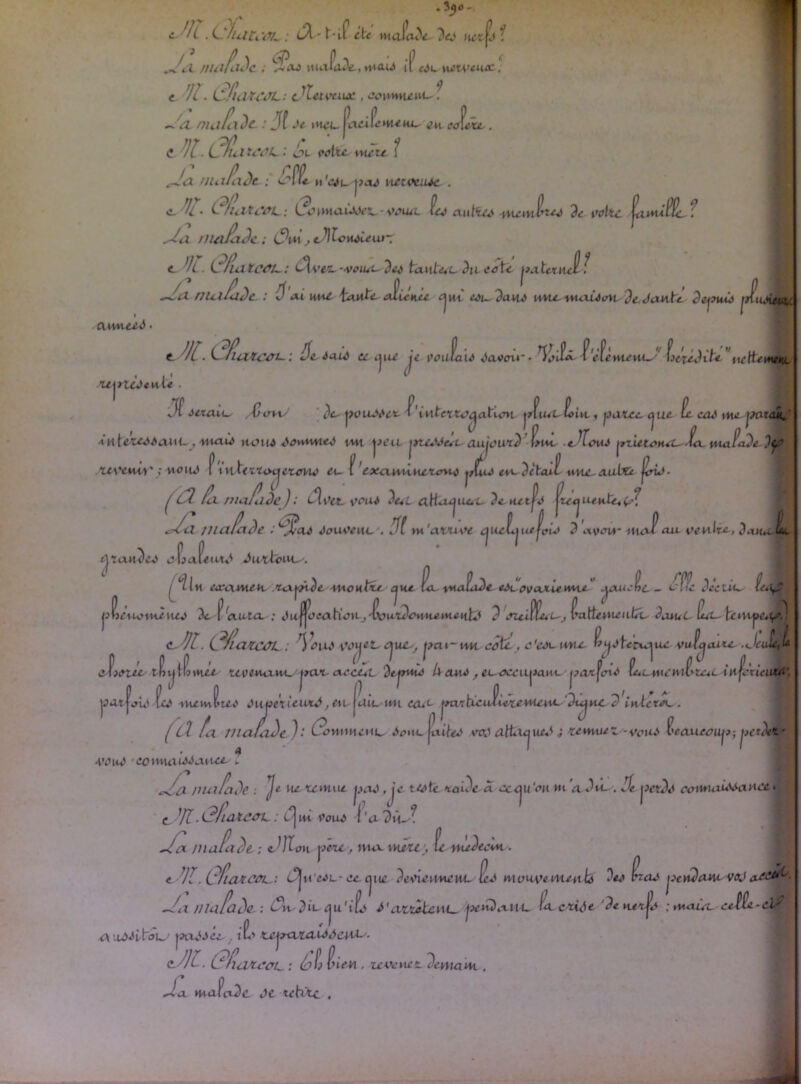 . 390 -
M. Charcot : A-t-il été malade des nerfs ?
La malade : Pas malade, mais il est nerveux.
M. Charcot : Nerveux, comment ?
La malade : Il se met facilement en colère.
M. Charcot : Et votre mère ?
La malade : Elle n'est pas nerveuse.
M. Charcot : Connaissez-vous les autres membres de votre famille ?
La malade : Oui, Monsieur.
M. Charcot : Avez-vous des tantes du côté paternel ?
La malade : J'ai une tante aliénée qui est dans une maison de santé depuis plusieurs
années.
M. Charcot : Je sais ce que je voulais savoir. Voilà l'élément "hérédité" nettement
représenté.
Il serait bon de pousser l'interrogation plus loin, parce que le cas me paraît
intéressant, mais nous sommes un peu pressés aujourd'hui. Nous prierons la malade de
revenir ; nous l'interrogerons et l'examinerons plus en détail une autre fois.
(A la malade) : Avez vous des attaques de nerfs fréquentes ?
La malade : Pas souvent. Il m'arrive quelquefois d'avoir mal au ventre, dans les
grandes chaleurs surtout.
(Un examen rapide montre que la malade est "ovarienne" gauche - Elle décrit les
phénomènes de l'aura : suffocation, bourdonnements d'oreilles, battements dans les tempes.)
M. Charcot : Vous voyez que, par un côté, c'est une hystérique vulgaire.
chorée rhythmée revenant par accès depuis ans, et occupant parfois les membres inférieurs,
parfois les membres supérieurs, en fait un cas particulièrement digne d'intérêt.
(A la malade) : Comment sont faites vos attaques ; remuez-vous beaucoup ; perdez-
vous connaissance ?
La malade : Je ne remue pas, je reste raide à ce qu'on m'a dit. Je perds connaissance.
M. Charcot : Qui vous l'a dit ?
La malade : Mon père, ma mère, le médecin.
M. Charcot : Qu'est-ce que deviennent les mouvements des bras pendant vos accès.
La malade : On dit qu'ils s'arrêtent pendant la crise de nerfs ; mais celle-ci
aussitôt passée, ils reparaissent.
M. Charcot : Eh bien, revenez demain.
La malade se retire.